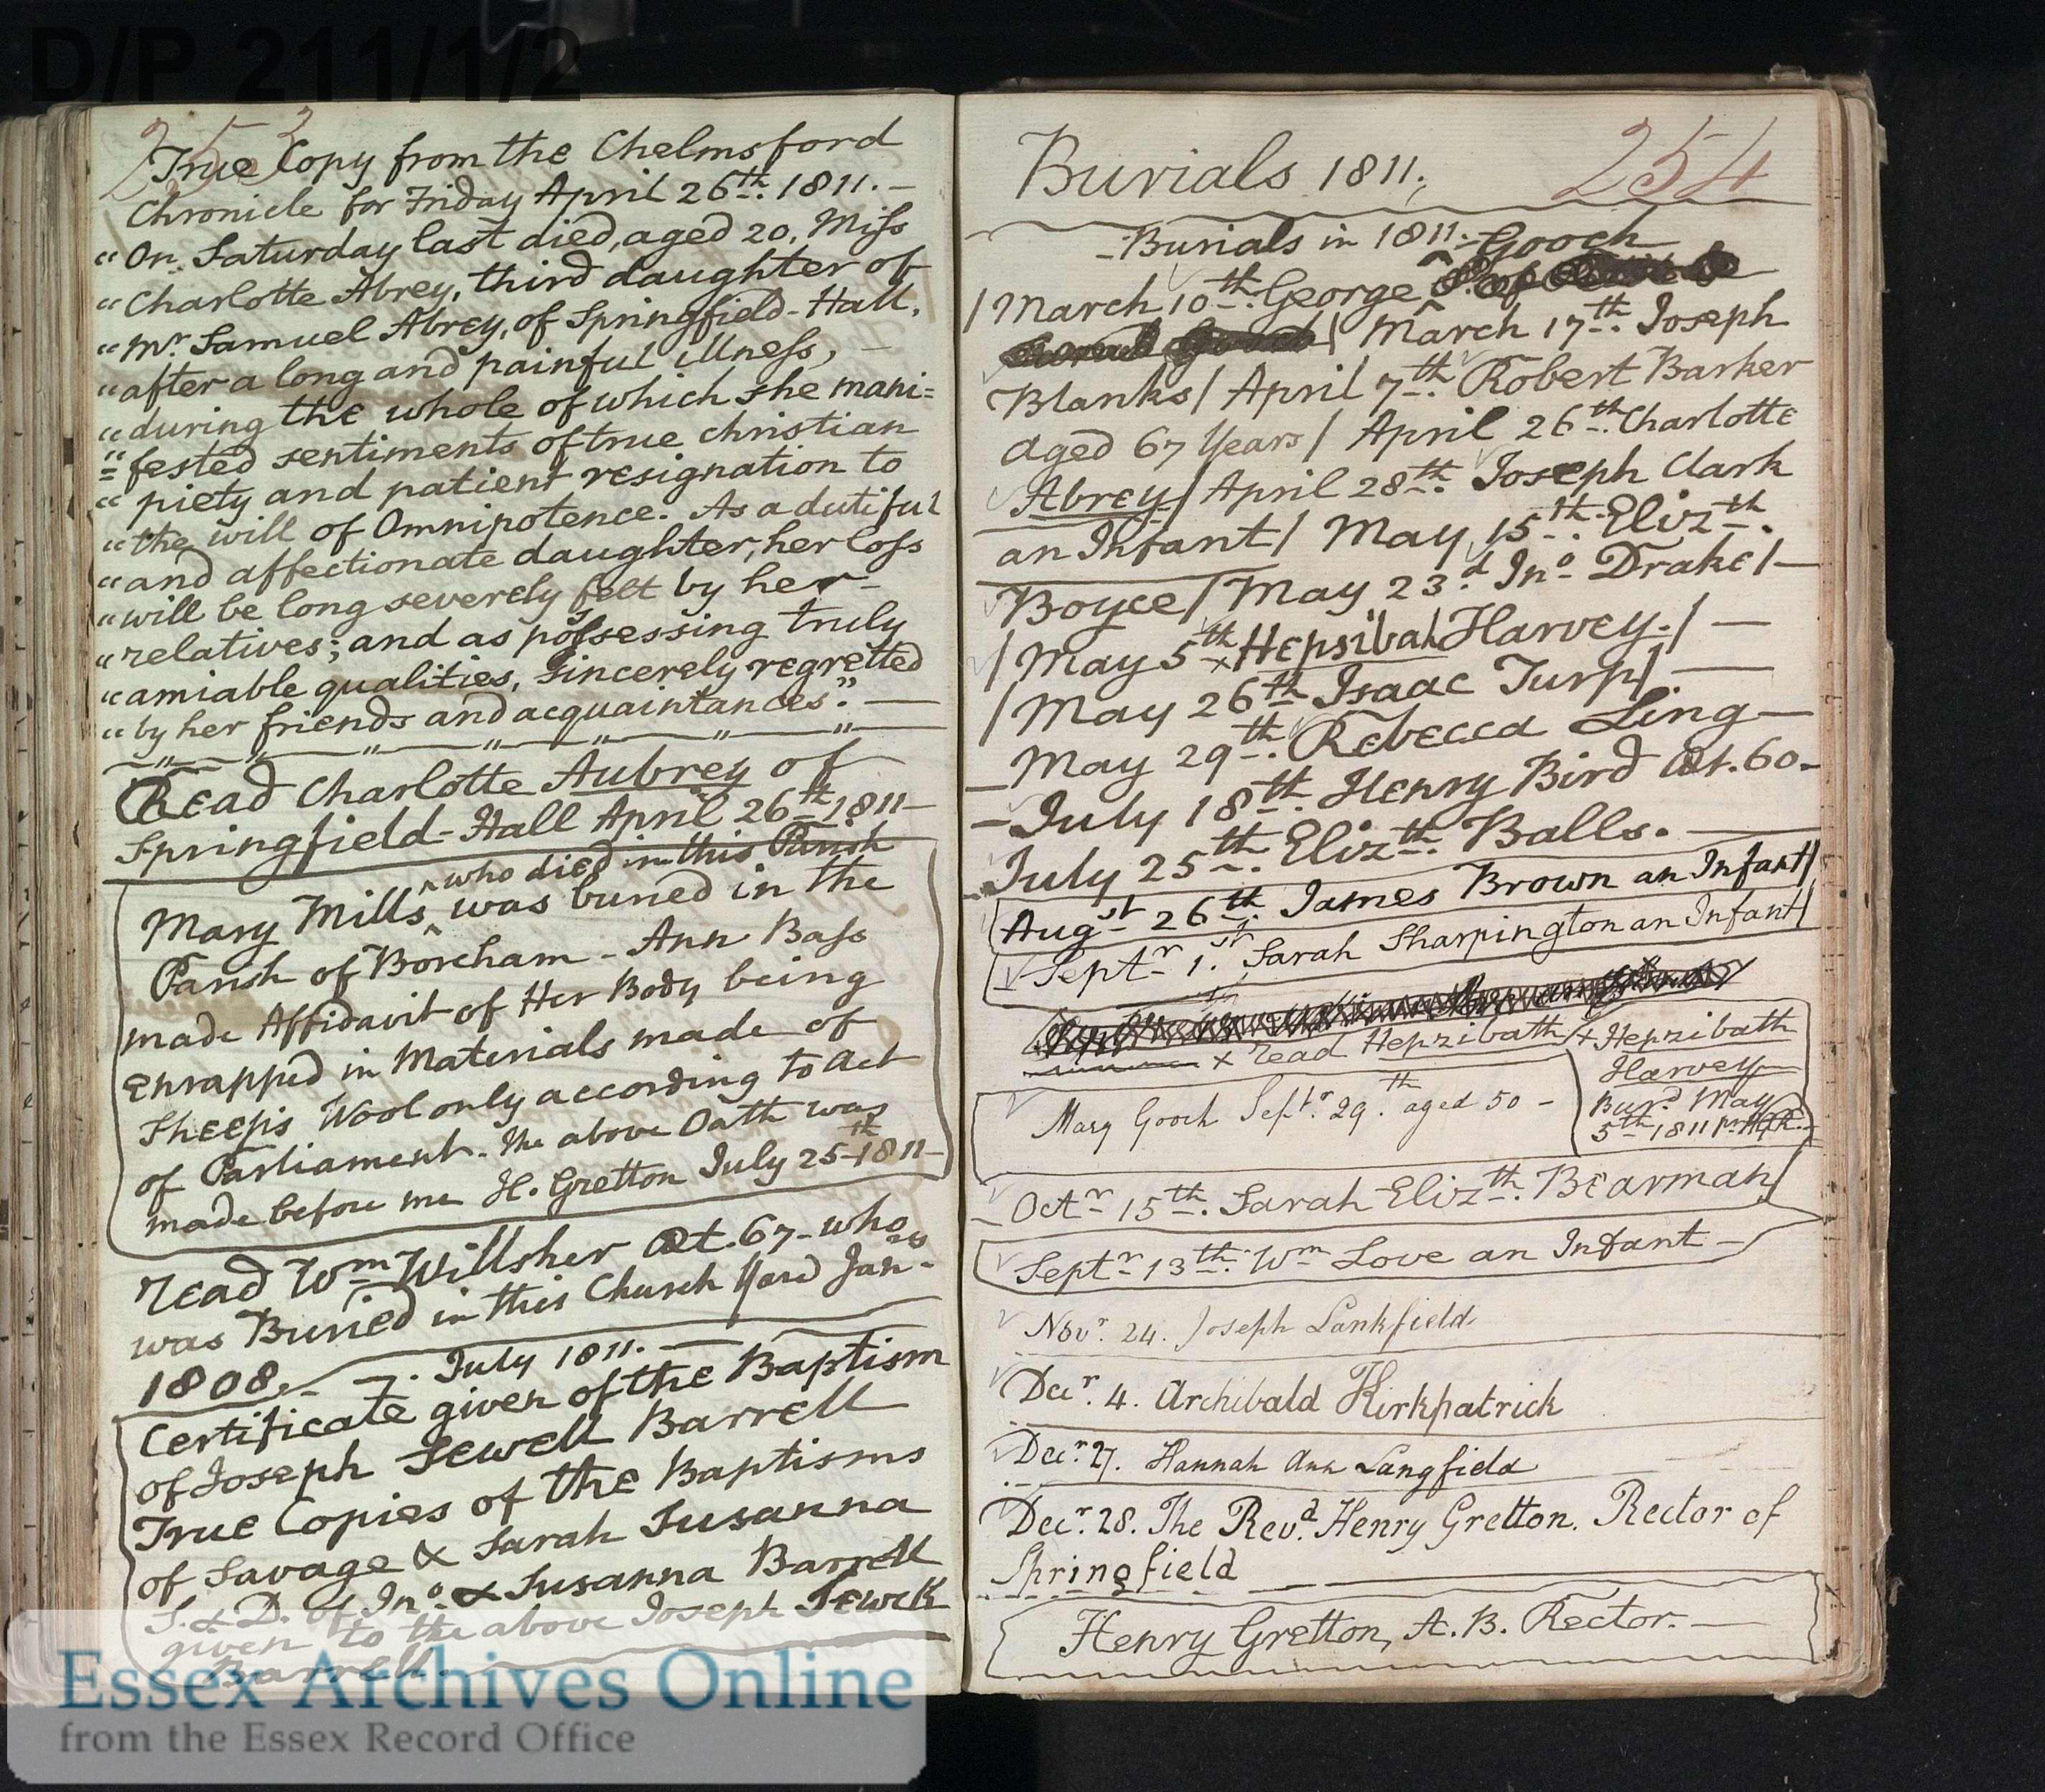 D/P 211/1/2
253
True Copy from the Chelmsford
Chronicle for Friday April 26th. 1811.-
"On Saturday last died, aged 20, Miss
"Charlotte Abrey, third daughter of
"Mr. Samuel Abrey, of Springfield-Hall,
"after a long and painful illness, -
"during the whole of which she mani=
"=fested sentiments of true christian
"piety and patient resignation to
"the will of Omnipotence. As a dutiful
"and affectionate daughter, her loss
"will be long severely felt by her-
"relatives; and as possessing truly
"amiable qualities, sincerely regretted
"by her friends and acquaintances." —
Read Charlotte Aubrey of
Springfield-Hall April 26th 1811-
who died in this Parish
Mary Mills ^ was buried in the
Parish of Boreham - Ann Bass
made Affidavit of Her Body being
enrapped in Materials made of
Sheep's Wool only according to Act
of Parliament. The above Oath was
made before me H. Gretton July 25th 1811-
read Wm. Willsher Æt. 67- who
was Buried in this Church Yard Jan-
1808. - 7. July 1811. —
Certificate given of the Baptism
of Joseph Sewell Barrell
True Copies of the Baptisms
of Savage & Sarah Susanna
S. & D. of Jno. & Susanna Barrell
given to the above Joseph Sewell
Barrell.
Burials 1811.
254
-Burials in 1811.-
Gooch
/ March 10th. George ^
/ March 17th. Joseph
Blanks / April 7th. Robert Barker
aged 67 Years / April 26th. Charlotte
Abrey / April 28th. Joseph Clark
an Infant / May 15th. Elizth.
Boyce / May 23d. Jno. Drake / -
/ May 5th x Hepsibah Harvey. / —
/ May 26th Isaac Turp / —
— May 29th. Rebecca Ling —
- July 18th. Henry Bird Æt. 60-
July 25th. Elizth. Balls. —
Augst 26th. James Brown an Infant /
Septr 1.st Sarah Sharpington an Infant /
x read Hepzibath / + Hepzibath
Harvey
Burd. May
5th 1811
Mary Gooch Septr. 29.th aged 50 -
Octr 15th. Sarah Elizth. Bearman /
Septr 13th. Wm Love an Infant -
Novr. 24. Joseph Lankfield.
Decr. 4. Archibald Kirkpatrick
Decr. 27. Hannah Ann Langfield
Decr. 28. The Revd. Henry Gretton. Rector of
Springfield
Henry Gretton, A.B. Rector. —
Essex Archives Online
from the Essex Record Office